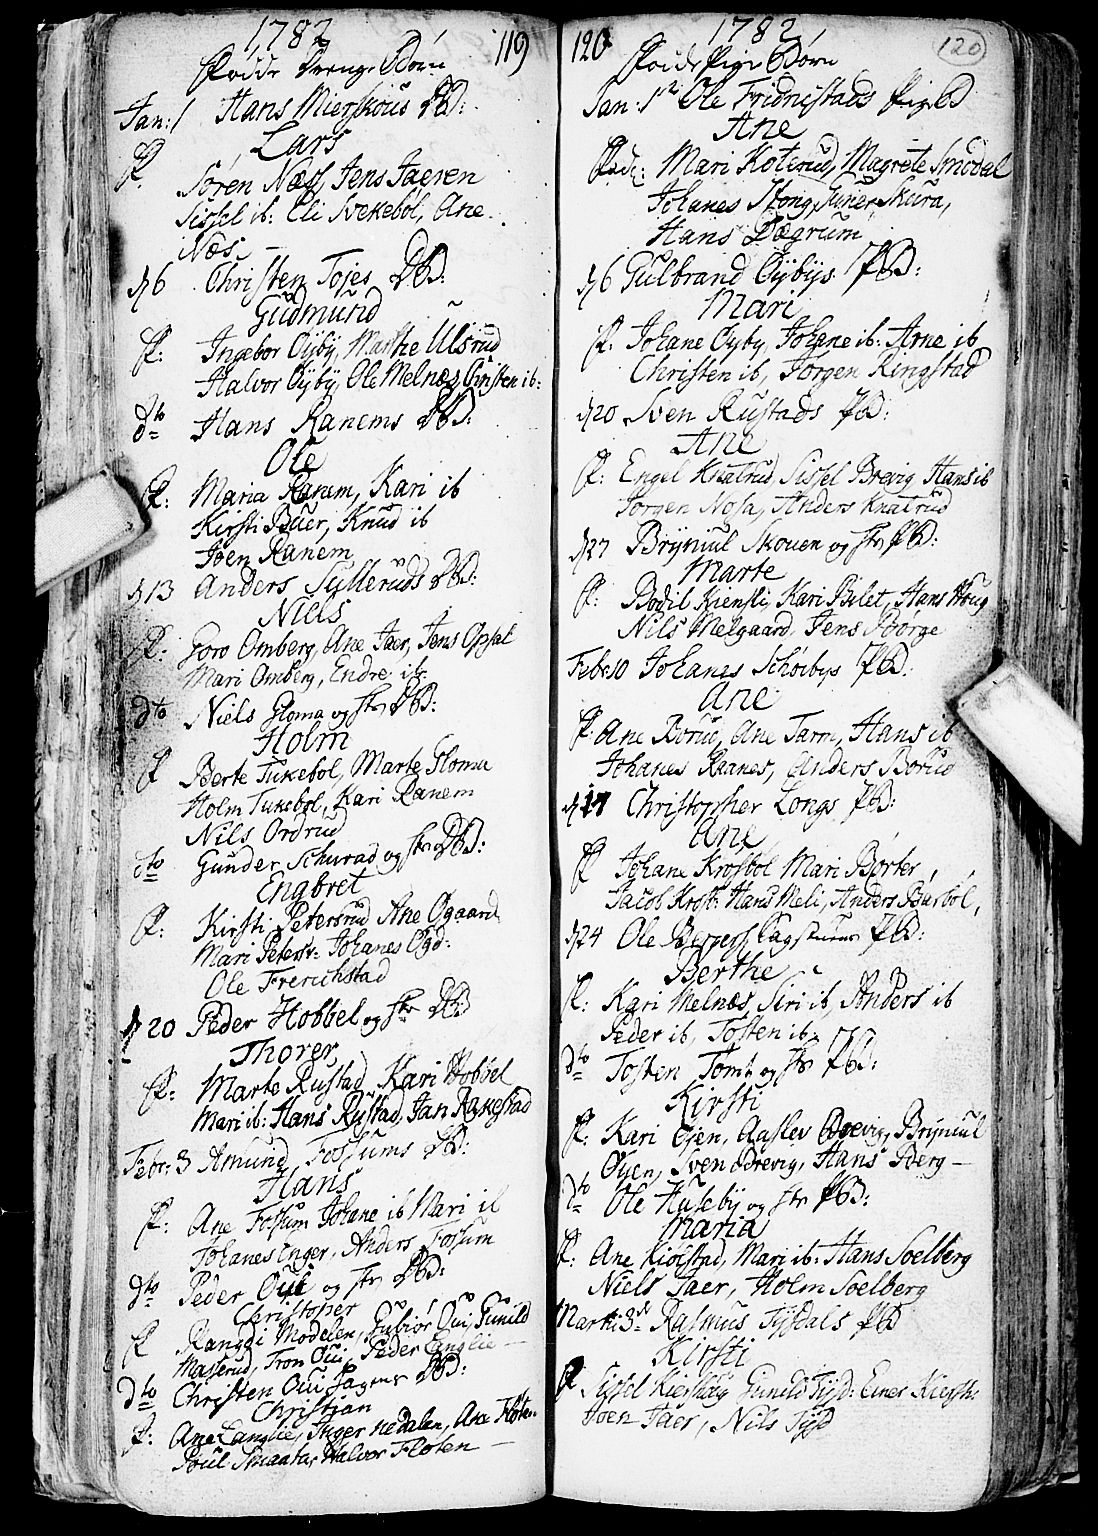 1782 119
Fødde Drenge Børn
Jan: 1 Hans Mierskous DB:
Lars
F. Søren Næss, Jens Jaeren
Sissel ib: Eli Svekebøl, Ane
Næs
d 6 Christen Tojes DB:
Gudmund
F: Ingebor Øyby, Marthe Ulsrud
Halvor Øyby, Ole Melnæs Christen ib:
dto Hans Ranems DB:
Ole
F: Maria Ranem, Kari ib
Kirsti Buer, Knud ib
Joen Ranem
d 13 Anders Sylleruds DB:
Niels
F: Goro Omberg, Ane Jaer, Jens Opsal
Mari Omberg, Endre ib:
dto Niels Gloma og fl: DB:
Holm
F Berte Tukebøl, Marte Gloma
Holm Tukebøl, Kari Ranem
Nils Ordrud
dto Gunder Schurad og fl: DB:
Engbret
F: Kirsti Petersrud Ane Øgaard
Mari Petersr: Johanes Øgd:
Ole Frerichstad
d 20 Peder Hobbel og fl: DB
Thorer
F: Marte Rustad, Kari Hobøel
Mari ib: Hans Rustad, Jan Rakestad
Febr: 3 Amund Fossums DB:
Hans
F: Ane Fossum Johane ib Mari ib
Johanes Enger, Anders Fossum
dto Peder Oui og fl: DB:
Christopher
F Rangdi Modelen, Gubiør Oui, Gunild
Masterud, Tron Oui, Peder Langlie
dto Christen Oui DB:
Christian
F: Ane Langlie, Inger Nedalen, Ane Floten
Poul Smaata, Halvor Floten
120 1782 120
Fødde Pige Børn
Jan: 1 Ole Fridrichstads Pige B
Ane
Fad: Mari Koterud, Magrete Smødal
Johanes Skong, Guner Skura,
Hans Dægrum
d 6 Gulbrand Øybys PB:
Mari
F: Johane Øyby, Johane ib: Arne ib
Christen ib, Jorgen Ringstad
d 20 Sven Rustads PB:
Ane
F: Engel Knatrud, Sissel Brevig Hans ib
Jorgen Nosa, Anders Knatrud
d 27 Bryniul Skouen og fl: PB:
Marte
F: Bodil Kiensli, Kari Bilet, Hans Houg
Nils Melgaard, Jens Borge
Febr 10 Johanes Schøibys PB:
Ane
F: Ane Borud, Ane Tarm, Hans ib
Johanes Raanes, Anders Borud
d 17 Christopher Longs PB:
Ane
F Johane Krosbøl Mari Børter,
Jacob Krosb: Hans Meli, Anders Busbøl,
d 24 Ole PB:
Berthe
F: Kari Melnæs, Siri ib, Anders ib
Peder ib, Tosten ib:
dto Tosten Tomt og fl: PB:
Kirsti
F: Kari Øjen, Aaslev Brevig, Bryniul
Øyen, Sven Brevig, Hans Berg
dto Ole Huseby og fl: PB:
Maria
F: Ane Kiolstad, Mari ib: Hans Soelberg
Niels Jaer, Holm Soelberg
Marti 3 Rasmus Tysdals PB
Kirsti
F Sissel Kiershøy Gunild Tysd: Einer Kiersh:
Joen Jaer, Nils Tysd